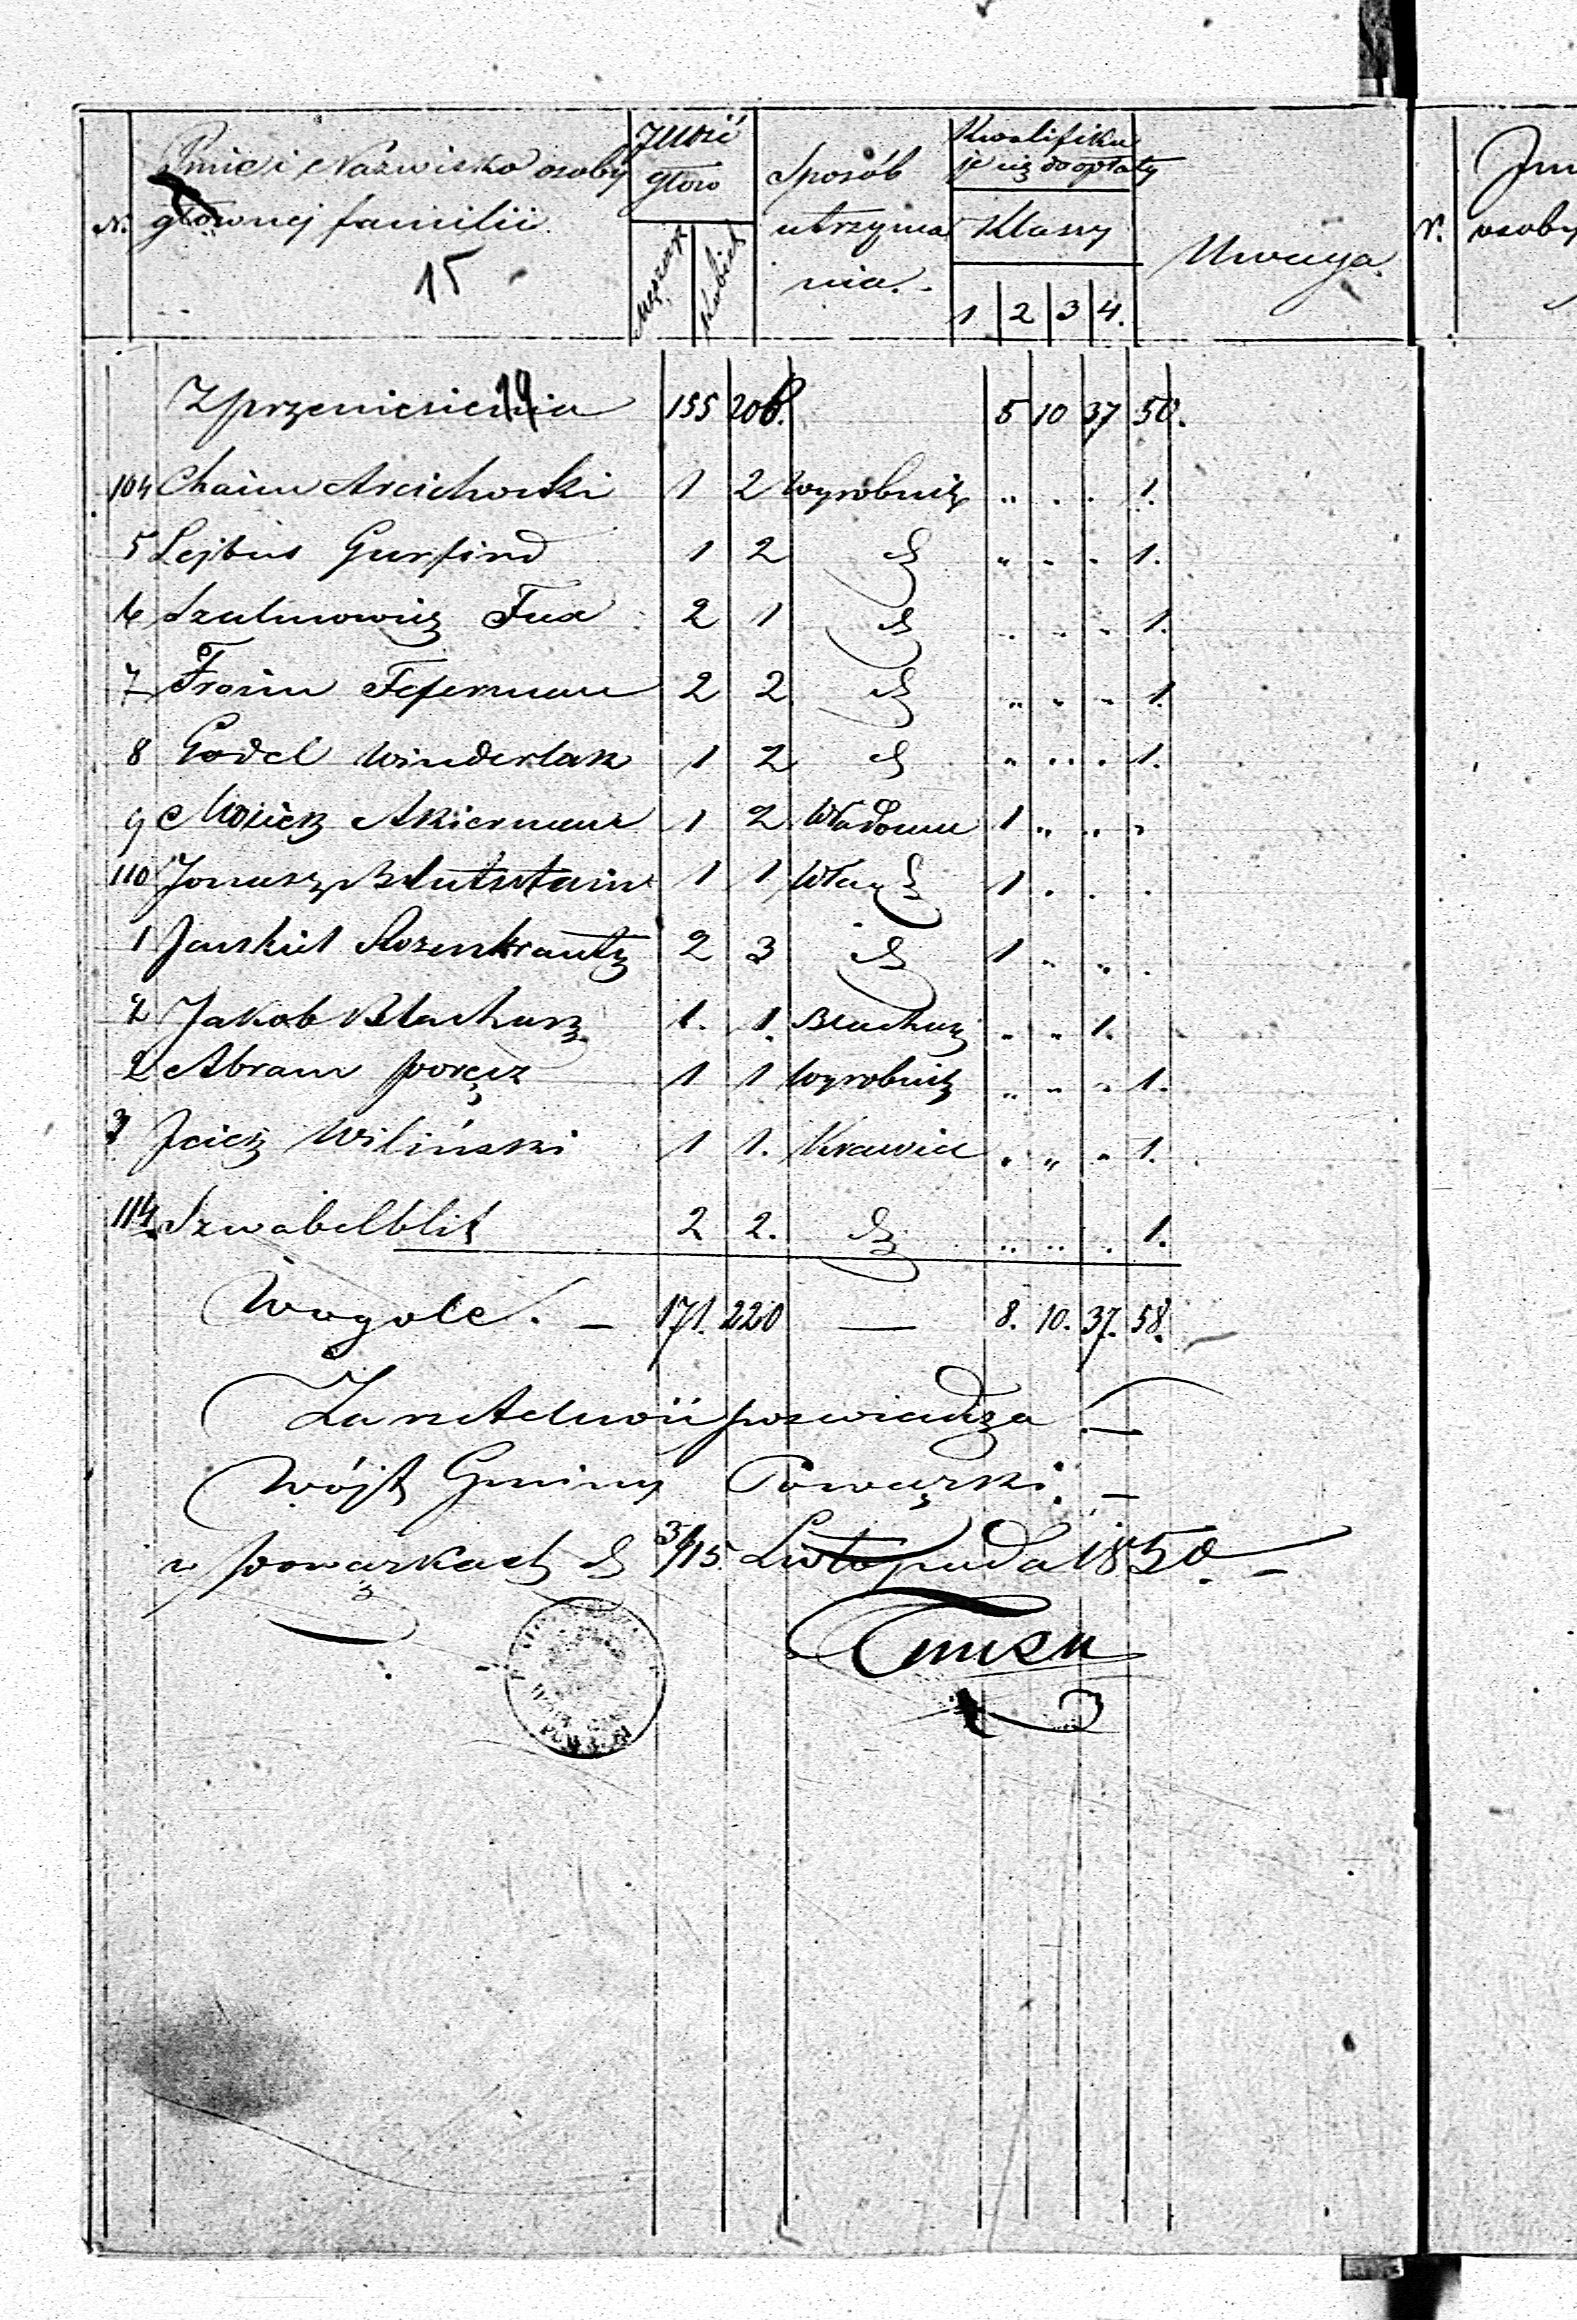 N. Imie i Nazwisko osoby głównej familii. Ilość głow Męzczyz Kobiet Sposób utrzyma nia. Kwalifiku je się do opłaty Klassy 1 2 3 4. Uwaga.
15
Z przeniesienia 14 155 206. 5 10 37 50.
104 Chaim Arcichowski 1 2 Wyrobnik „ . . 1.
5 Lejbus Gurfind 1 2 d „ . . 1.
6 Szulmowicz Fux 2 1 d . . . 1.
7 Froim Fefermann 2 2 d „ . . 1.
8 Godel Winderlak 1 2 d „ . . 1.
9 Moziek Akierman 1 2 Wł Domu 1 „ „ „
110 Jonusz Blutsztain 1 1 Wła d 1 . . .
1 Jankiel Rozenkrantz 2 3 d 1 „ „ .
2 Jakob Blacharz 1. 1. Blacharz „ „ 1.
2 Abram Poręcz 1 1 Wyrobnik „ „ „ 1.
3 Iciek Wiliński 1 1. Krawiec „ „ „ 1.
114. Szwabelblit 2 2. d „ „ . 1.
Wogole. — 171. 220 — 8. 10. 37. 58.
poswiadcza —
Wójt Gminy Powązki. —
w Powązkach d 3/15 Listopada 1850. —
N.
osoby